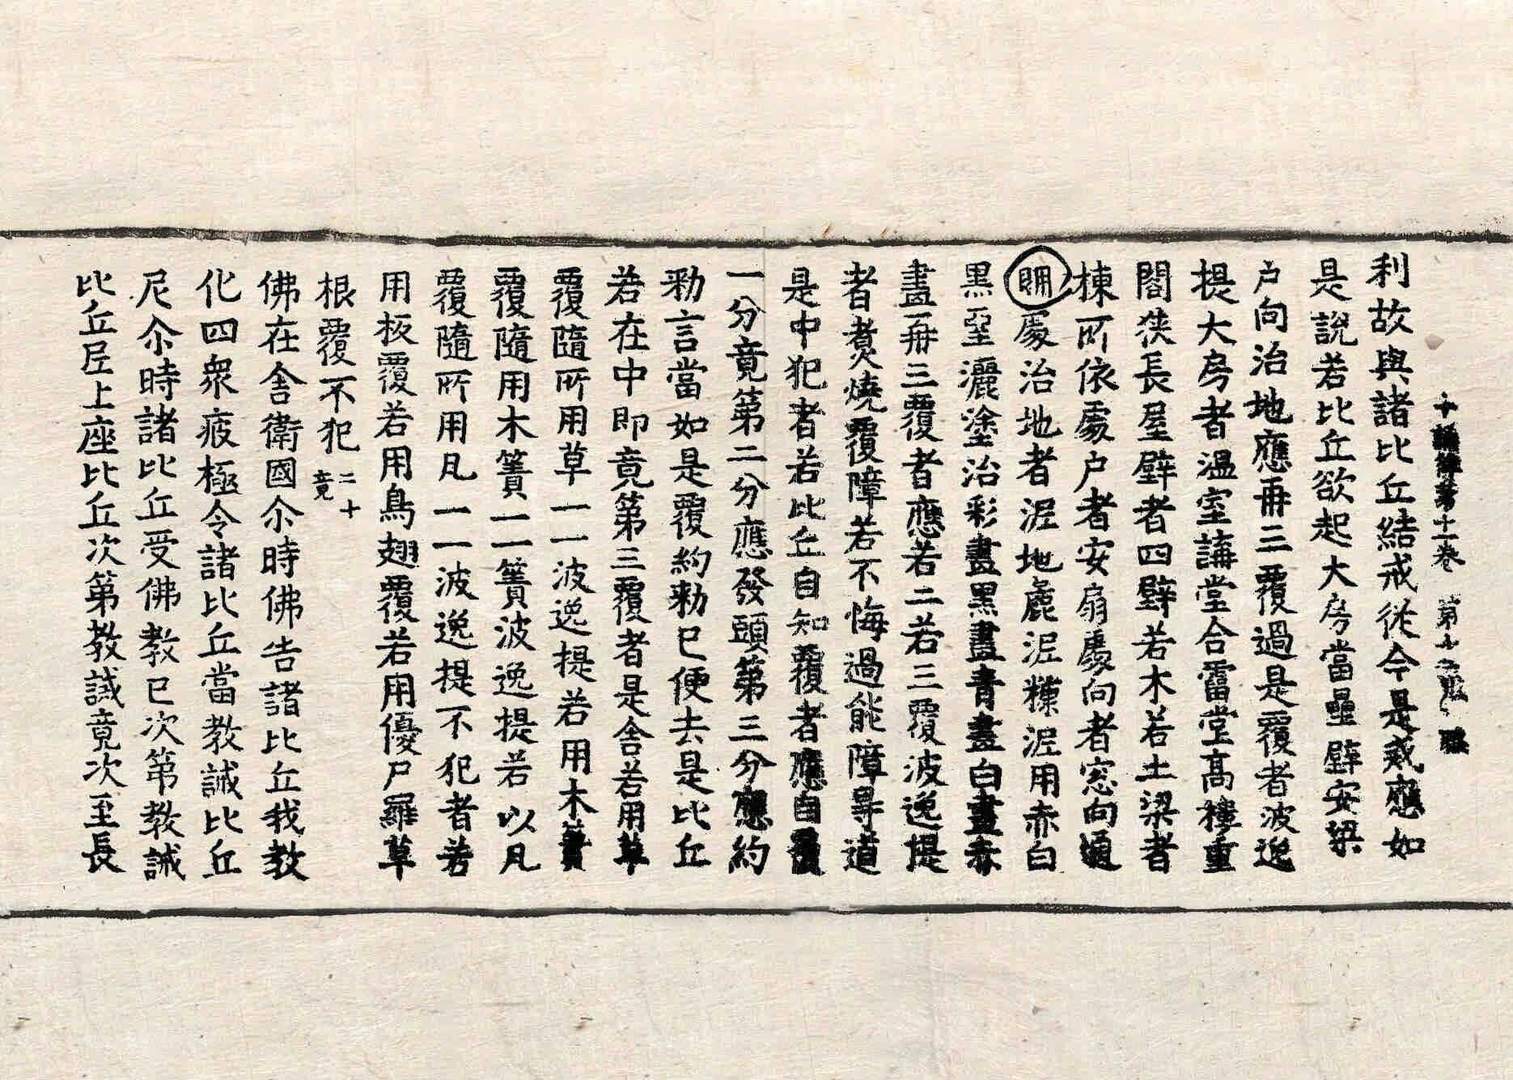 十誦律第十一卷 第十
利故與諸比丘結戒從今是戒應如
是說若比丘欲起大房當壘壁安梁
户向治地應再三覆過是覆者波逸
提大房者溫室講堂合霤堂高樓重
閣狹長屋壁者四壁若木若土梁者
棟所依處户者安扇處向者窓向
明處治地者泥地麁泥糠泥用赤白
黑堊灑塗治彩畫黑畫青畫白畫赤
畫再三覆者應若二若三覆波逸提
者煑燒覆障若不悔過能障㝵道
是中犯者若比丘自知覆者應自覆
一分竟第二分應發頭第三分應約
勑言當如是覆約勑已便去是比丘
若在中即竟第三覆者是舍若用草
覆隨所用草一一波逸提若用木簀
覆隨用木簀一一簀波逸提若以凡
覆隨所用凡一一波逸提不犯者若
用板覆若用鳥翅覆若用優尸羅草
根覆不犯二十竟
佛在舍衛國尒時佛告諸比丘我教
化四衆疲極令諸比丘當教誡比丘
尼尒時諸比丘受佛教已次第教誡
比丘尼上座比丘次第教誡竟次至長